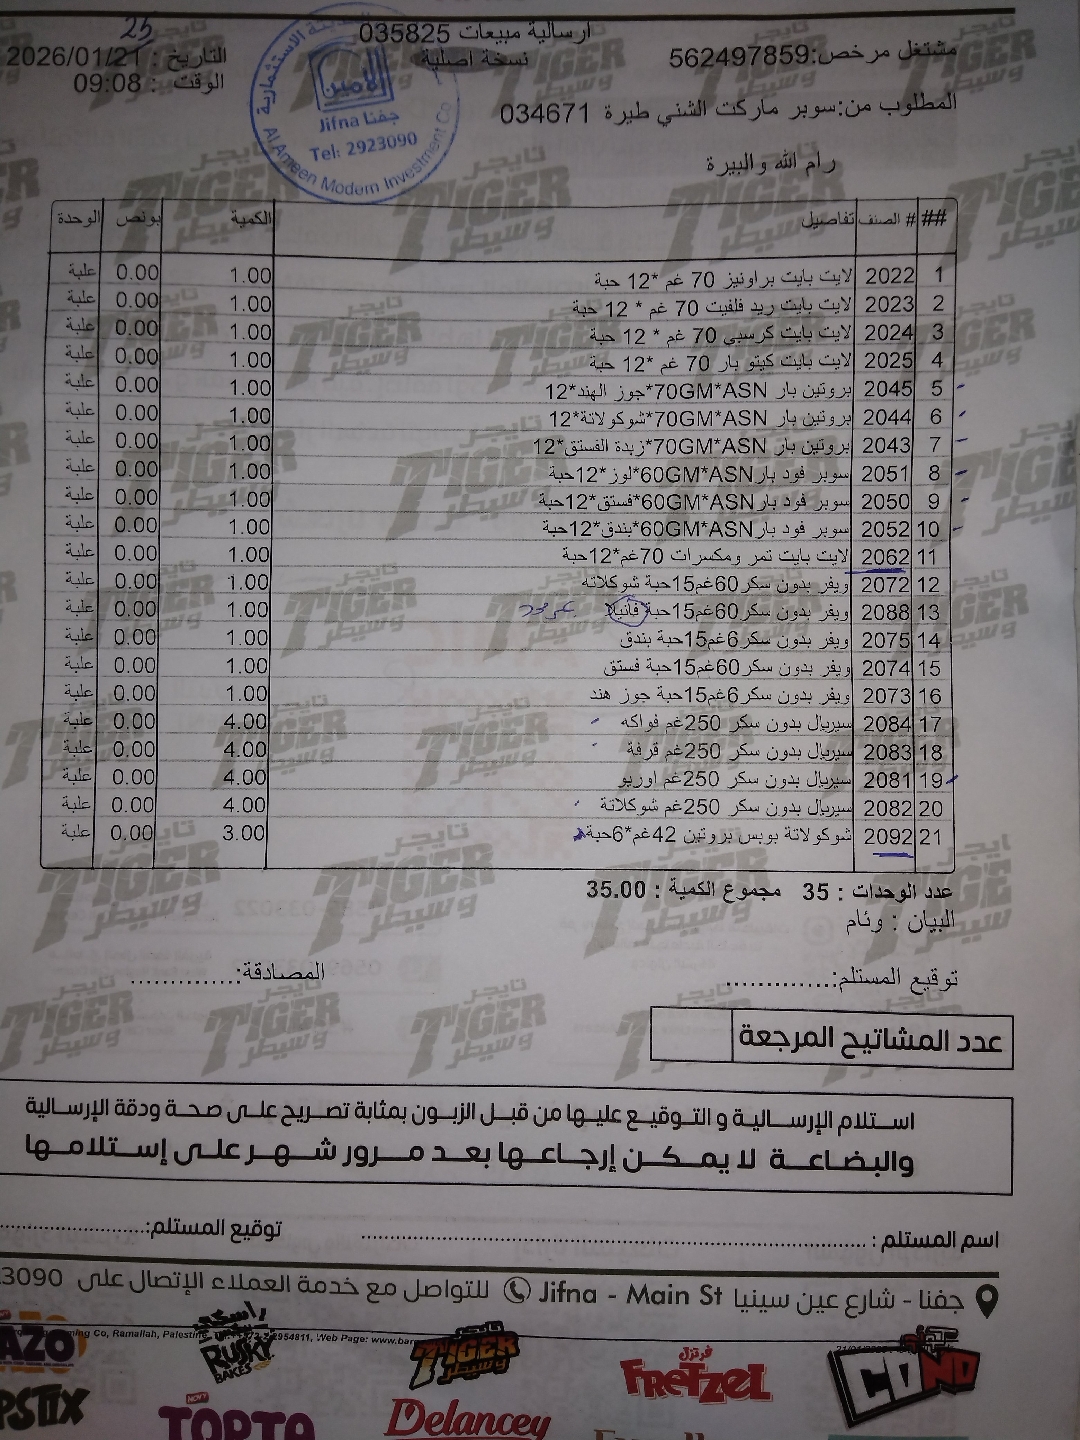 ارسالية مبيعات 035825
نسخة اصلية
مشتغل مرخص:562497859
25
التاريخ : 2026/01/21
الوقت : 09:08
المطلوب من:سوبر ماركت الشني طيرة 034671
رام الله والبيرة
الأمين
جفنا Jifna
Tel: 2923090
Al Ameen Modern Investment Co.
## # الصنف تفاصيل الكمية بونص الوحدة
1 2022 لايت بايت براونيز 70 غم *12 حبة 1.00 0.00 علبة
2 2023 لايت بايت ريد فلفيت 70 غم * 12 حبة 1.00 0.00 علبة
3 2024 لايت بايت كرسبي 70 غم * 12 حبة 1.00 0.00 علبة
4 2025 لايت بايت كيتو بار 70 غم *12 حبة 1.00 0.00 علبة
5 2045 بروتين بار 70GM*ASN*جوز الهند*12 1.00 0.00 علبة
6 2044 بروتين بار 70GM*ASN*شوكولاتة*12 1.00 0.00 علبة
7 2043 بروتين بار 70GM*ASN*زبدة الفستق*12 1.00 0.00 علبة
8 2051 سوبر فود بار60GM*ASN*لوز*12حبة 1.00 0.00 علبة
9 2050 سوبر فود بار60GM*ASN*فستق*12حبة 1.00 0.00 علبة
10 2052 سوبر فود بار60GM*ASN*بندق*12حبة 1.00 0.00 علبة
11 2062 لايت بايت تمر ومكسرات 70غم*12حبة 1.00 0.00 علبة
12 2072 ويفر بدون سكر60غم15حبة شوكلاته 1.00 0.00 علبة
13 2088 ويفر بدون سكر60غم15حبة فانيلا 1.00 0.00 علبة
14 2075 ويفر بدون سكر6غم15حبة بندق 1.00 0.00 علبة
15 2074 ويفر بدون سكر60غم15حبة فستق 1.00 0.00 علبة
16 2073 ويفر بدون سكر6غم15حبة جوز هند 1.00 0.00 علبة
17 2084 سيريال بدون سكر 250غم فواكه 4.00 0.00 علبة
18 2083 سيريال بدون سكر 250غم قرفة 4.00 0.00 علبة
19 2081 سيريال بدون سكر 250غم اوريو 4.00 0.00 علبة
20 2082 سيريال بدون سكر 250غم شوكلاتة 4.00 0.00 علبة
21 2092 شوكولاتة بوبس بروتين 42غم*6حبة 3.00 0.00 علبة
عدد الوحدات : 35 مجموع الكمية : 35.00
البيان : وئام
توقيع المستلم:.............. المصادقة:..............
عدد المشاتيح المرجعة
استلام الإرسالية و التوقيع عليها من قبل الزبون بمثابة تصريح على صحة ودقة الإرسالية
والبضاعة لا يمكن إرجاعها بعد مرور شهر على إستلامها
اسم المستلم : .............. توقيع المستلم:..............
جفنا - شارع عين سينيا Jifna - Main St للتواصل مع خدمة العملاء الإتصال على 3090
ming Co, Ramallah, Palestine, 2954811, Web Page: www.bar
RUSKY
BAKES
TIGER
تايجر وسيطر
فرتزل
FRETZEL
COND
PSTIX
TORTA
Delancey